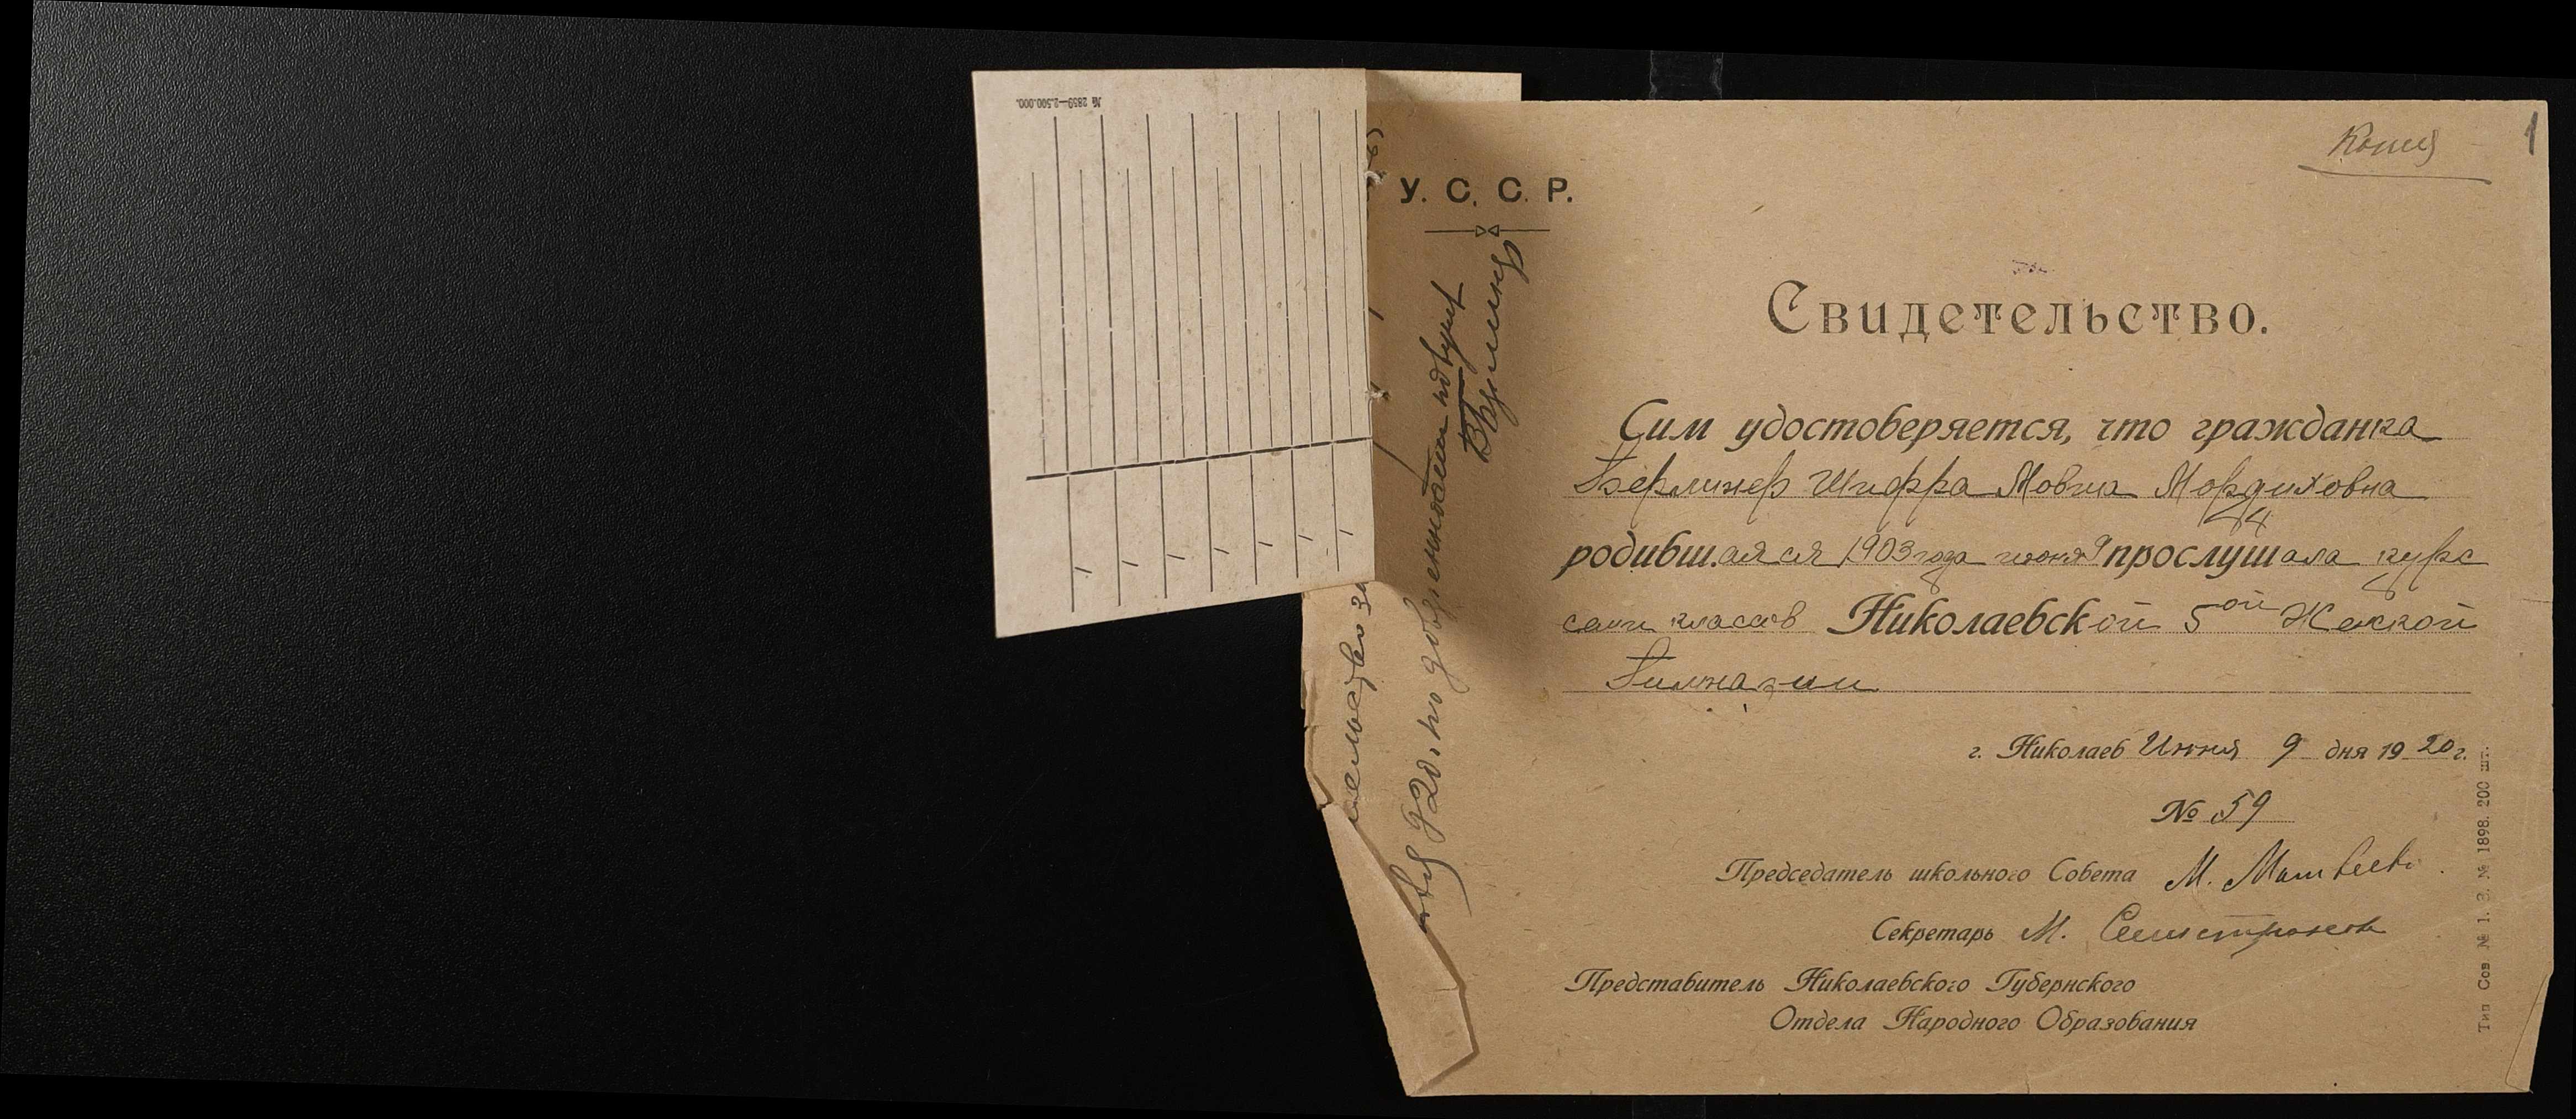 № 2859—2.500.000.
Копия
1
У. С. С. Р.
Свидетельство.
Сим удостоверяется, что гражданка
Берлинер Шифра Мовна Мордуховна
родившаяся 1903 года июня 9 прослушала курс
семи классов Николаевской 5ой Женской
Гимназии
г. Николаев Июня 9 дня 1920 г.
№ 59
Председатель школьного Совета М. Матвеев
Секретарь М.
Представитель Николаевского Губернского
Отдела Народного Образования
Тип Сов № 1. З. № 1898. 200 шт.
920 г. по доверенности получил
Берлинер